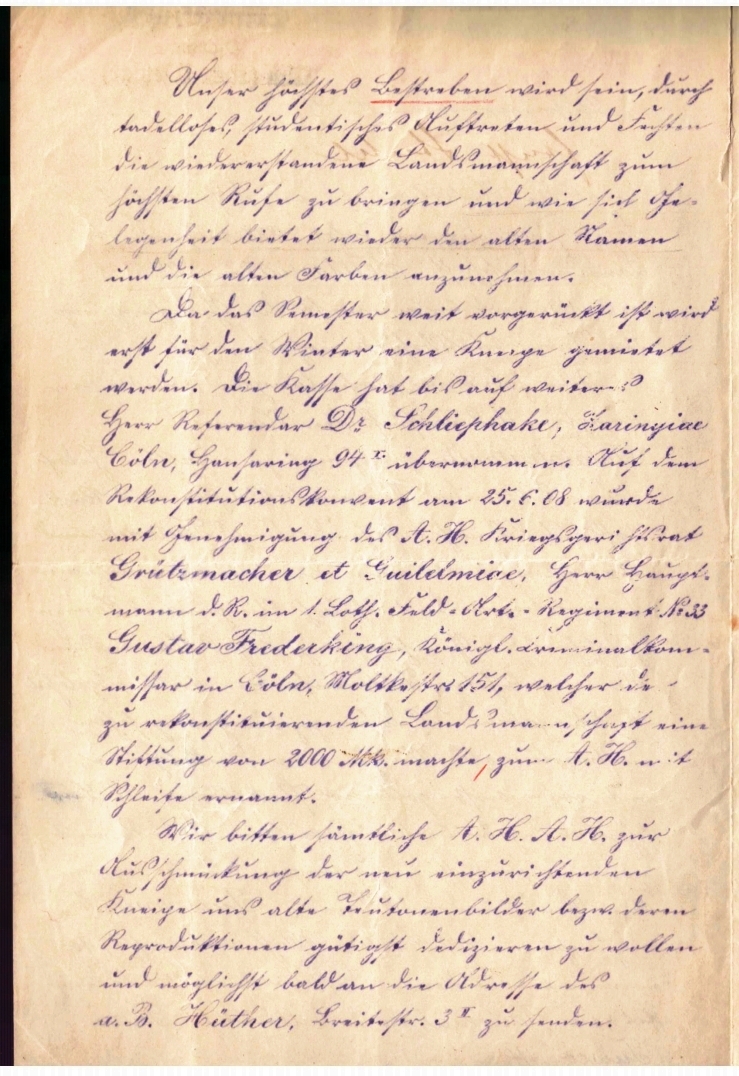 Unser höchstes Bestreben wird sein, durch
tadelloses, studentisches Auftreten und Fechten
die wiedererstandene Landsmannschaft zum
höchsten Rufe zu bringen und wie sich Ge-
legenheit bietet wieder den alten Namen
und die alten Farben anzunehmen.
Da das Semester weit vorgerückt ist wird
erst für den Winter eine Kneipe gemietet
werden. Die Kasse hat bis auf weiteres
Herr Referendar Dr Schliephake, Zaringiae
Cöln, Hansaring 94 I. übernommen. Auf dem
Rekonstitutionskonvent am 25.6.08 wurde
mit Genehmigung des A. H. Kriegsgerichtsrat
Grützmacher et Guilelmiae, Herr Haupt-
mann d. R. im 1. Loth. Feld-Art.-Regiment No 33
Gustav Frederking, Königl. Criminalkom-
missar in Cöln, Moltkestr. 151, welcher de
zu rekonstituierenden Landsmannschaft eine
Stiftung von 2000 Mk. machte, zum A. H. mit
Schleife ernannt.
Wir bitten sämtliche A. H. A. H. zur
Ausschmückung der neu einzurichtenden
Kneipe uns alte Teutonenbilder bezw. deren
Reproduktionen gütigst dedizieren zu wollen
und möglichst bald an die Adresse des
a. B. Hüther, Breitestr. 3 II zu senden.